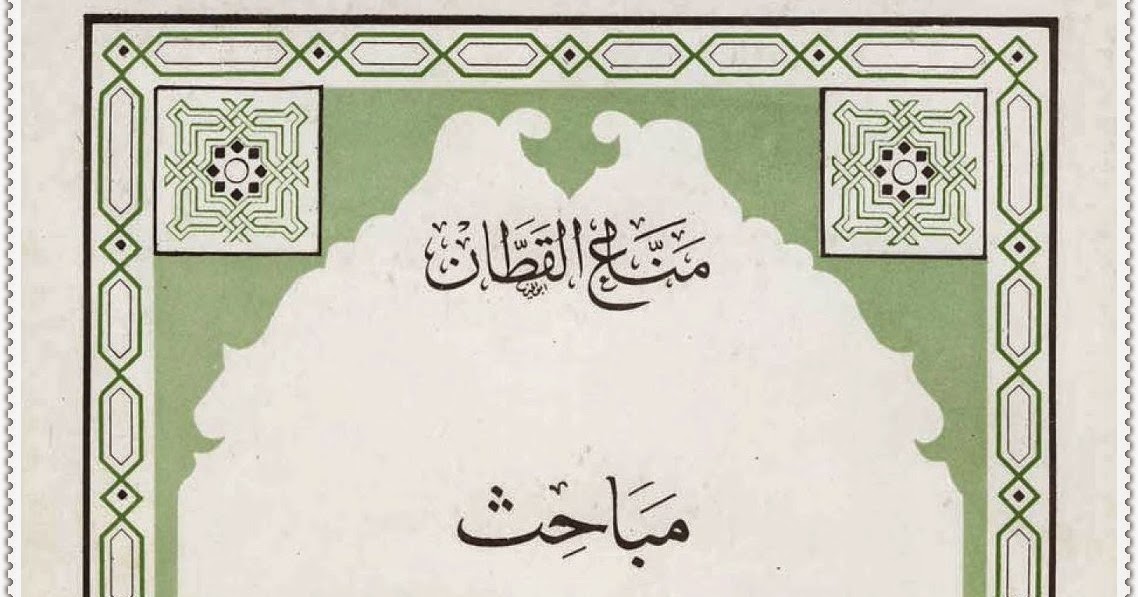 مَنَّاع القَطَّان
مَبَاحِث